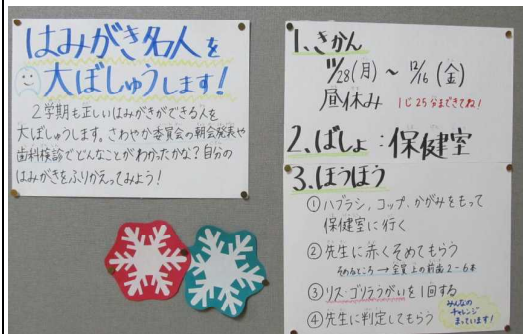 はみがき名人を
大ぼしゅうします!
2学期も正しいはみがきができる人を
大ぼしゅうします。さわやか委員会の朝会発表や
歯科検診でどんなことがわかったかな?自分の
はみがきをふりかえってみよう!
1、きかん
11/28(月)~12/16(金)
昼休み 1じ25分まできてね!
2.ばしょ:保健室
3.ほうほう
①ハブラシ、コップ、かがみをもって
保健室に行く
②先生に赤くそめてもらう
そめるところ→全員上の前歯2-6本
③リス・ゴリラうがいを1回する
④先生に判定してもらう
みんなの
チャレンジ
まっています!